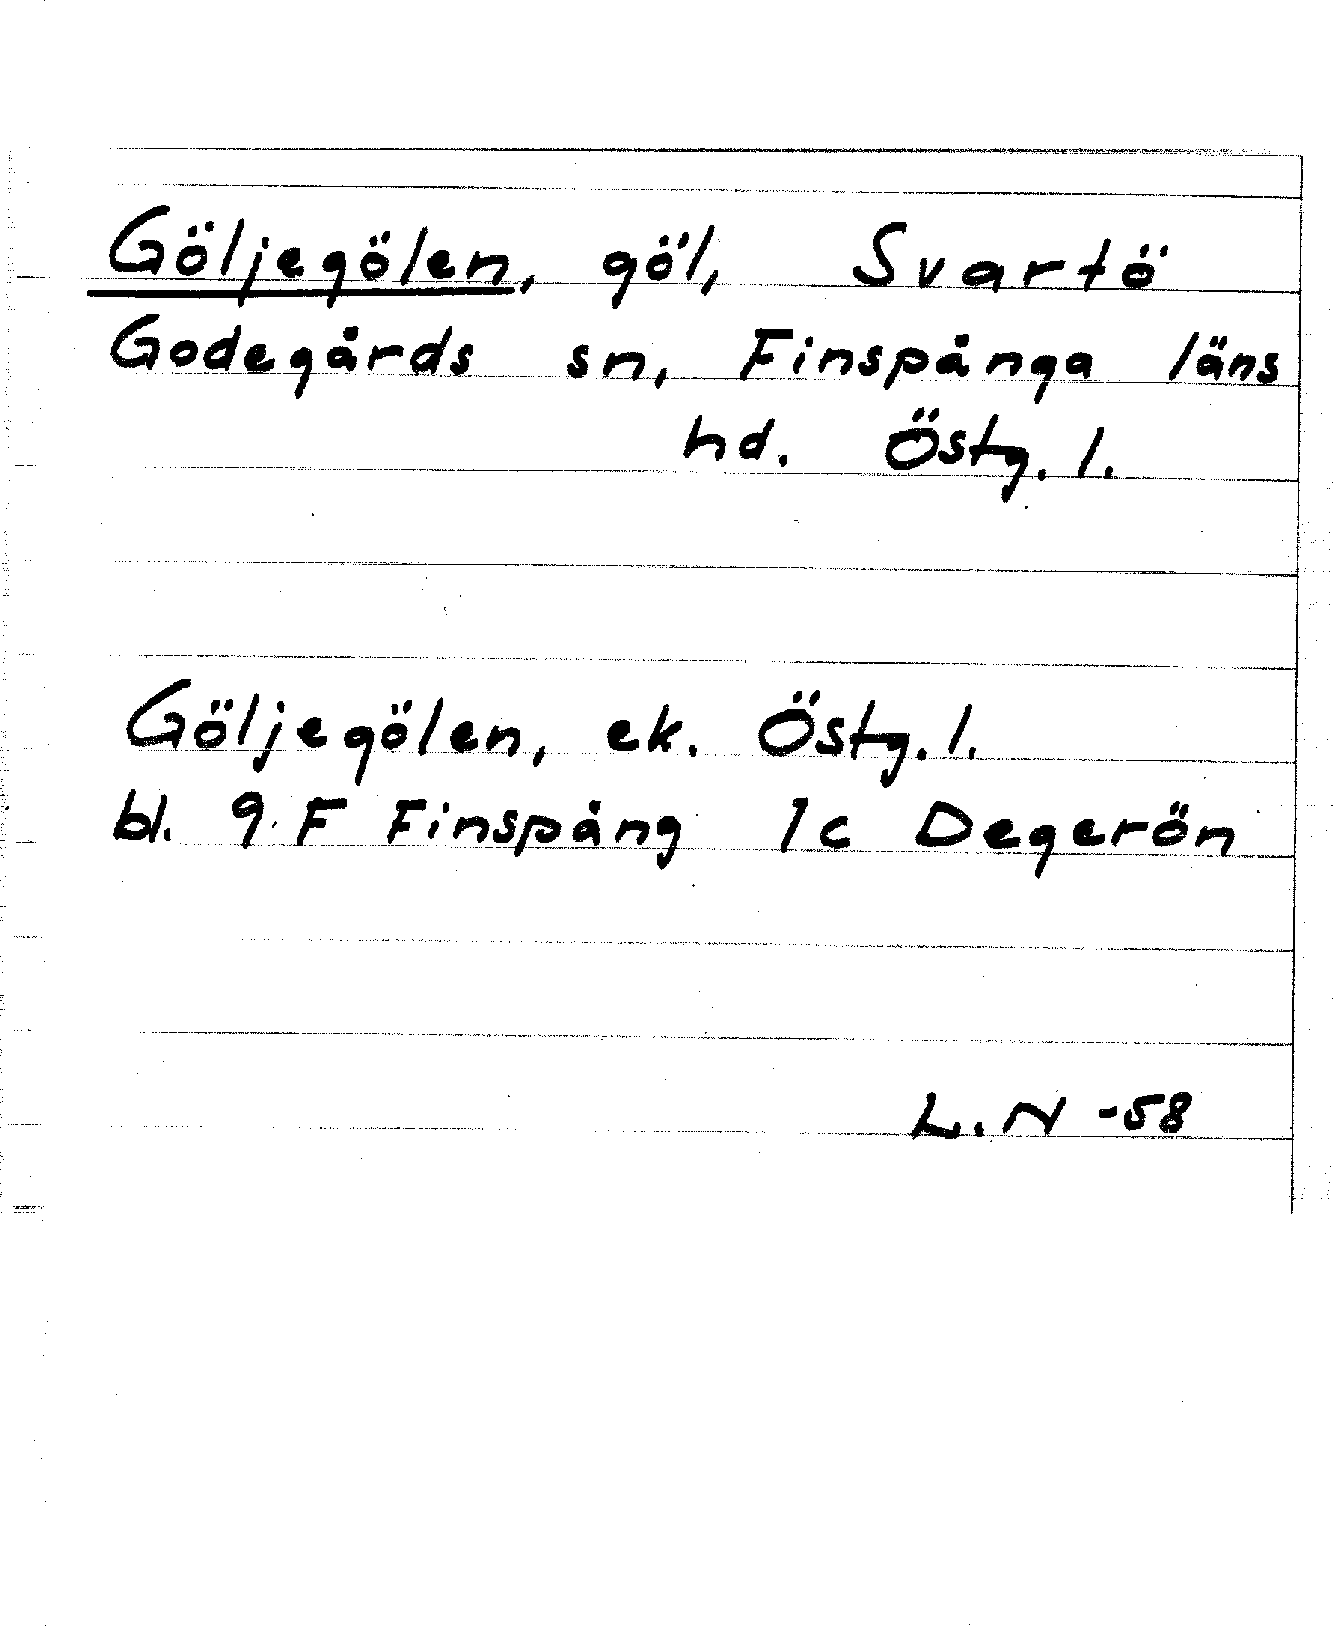 Göljegölen, göl, Svartö
Godegårds sn, Finspånga läns
hd. Östg. l.
Göljegölen, ek. Östg. l.
bl. 9 F Finspång 1c Degerön
L. N -58